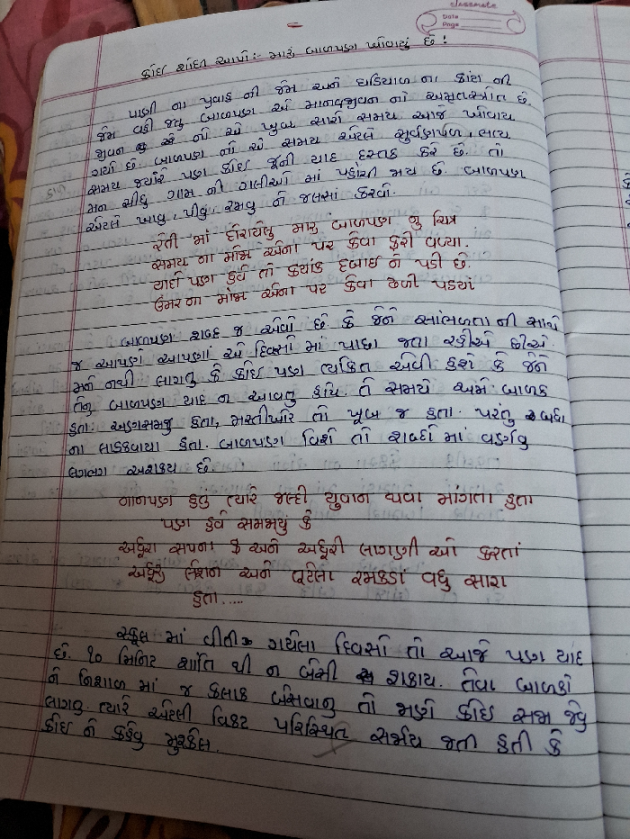 classmate
Date
Page
કોઈ શોધી આપો :- મારું બાળપણ ખોવાયું છે !
પાણી ના પ્રવાહ ની જેમ અને ઘડિયાળ ના કાંટા ની
જેમ વહી જતુ બાળપણ એ માનવજીવન નો અમૃતસ્ત્રોત છે.
જીવન નો એ ખુબ સારો સમય આજે ખોવાય
ગયો છે. બાળપણ નો એ સમય એટલે સુવર્ણકાળ,
સમય જ્યારે પણ કોઈ જૂની યાદ દસ્તક કરે છે. તો
મન સીધુ ગામ ની ગલીઓ માં પહોચી જાય છે. બાળપણ
એટલે ખાવુ, પીવું, રમવુ ને જલસા કરવો.
રેતી માં દોરાયેલુ મારુ બાળપણ નુ ચિત્ર
સમય ના મોજા એના પર કેવા ફરી વળ્યા.
યાદો પણ હવે તો ક્યાંક દબાઈ ને પડી છે.
ઉંમર ના મોજા એના પર કેવા ઢળી પડયાં
બાળપણ શબ્દ જ એવો છે કે જેને સાંભળતા ની સાથે
જ આપણે આપણાં એ દિવસો માં પાછા જતા રહીએ છીએ
મને નથી લાગતુ કે કોઈ પણ વ્યકિત એવી હશે કે જેને
તેનુ બાળપણ યાદ ન આવતુ હોય. તે સમયે અમે બાળક
હતા. અણસમજુ હતા, મસ્તીખોર તો ખૂબ જ હતા. પરંતુ બધા
ના લાડકવાયા હતા. બાળપણ વિશે તો શબ્દો માં વર્ણવુ
લગભગ અશક્ય છે.
નાનપણ હતુ ત્યારે જલ્દી યુવાન થવા માંગતા હતા
પણ હવે સમજાયું કે
અધૂરા સપના અને અધૂરી લાગણી ઓ કરતાં
અધૂરુ લેશન અને તૂટેલા રમકડાં વધુ સારા
હતા.....
સ્કૂલ માં વીતી ગયેલા દિવસો તો આજે પણ યાદ
છે. ૧૦ મિનિટ શાંતિ થી ન બેસી શકાય. તેવા બાળકો
ને નિશાળ માં જ કલાક બેસવાનુ તો જાણે કોઈ સજા જેવુ
લાગતુ ત્યારે એટલી વિકટ પરિસ્થિત સર્જાય જતી હતી કે
કોઈ ને કહેવુ મુશ્કેલ.